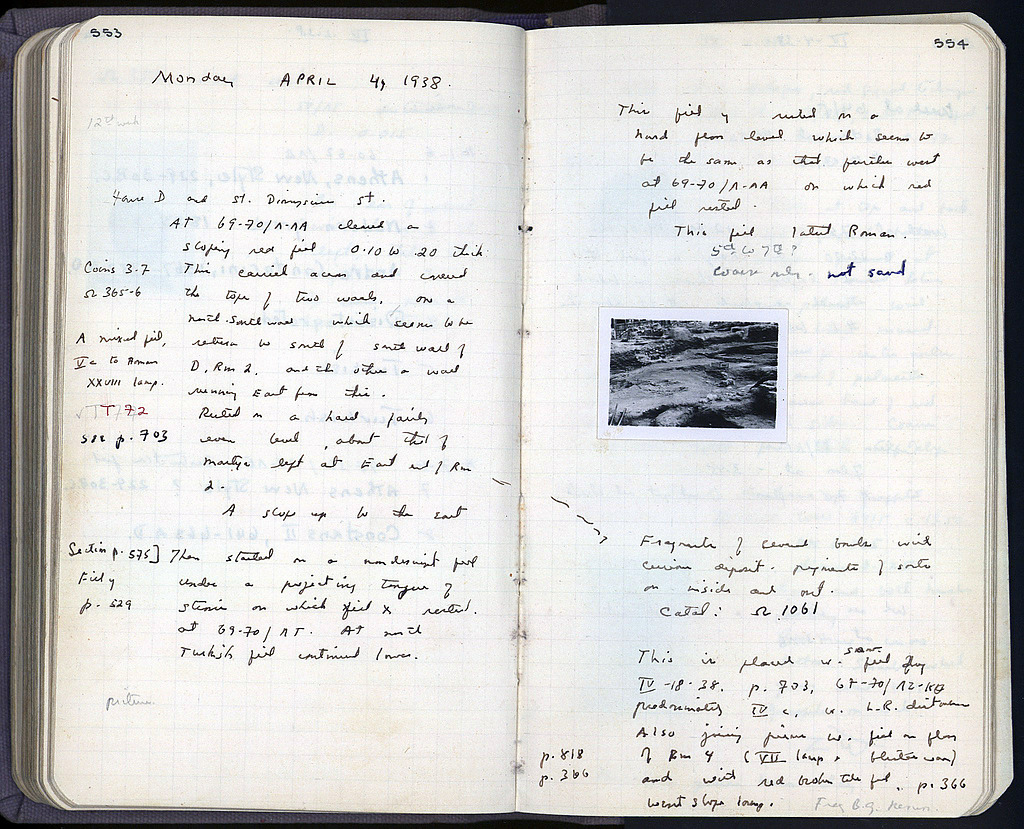 553
Monday APRIL 4, 1938.
12th week
House D and St. Dionysius St.
At 69-70/Λ-ΛΛ cleared a
sloping red fill 0.10 to .20 thick.
Coins 3-7
Ω 365-6
This carried across and covered
the tops of two walls, one a
north-south wall which seems to be
A mixed fill,
Vc to Roman
XXVIII lamp.
return to south of south wall of
D, Rm 2, and the other a wall
running East from this.
ΠΤ/72
see p. 703
Rested on a hard fairly
even level, about that of
left at East end of Rm
2.
A slope up to the East
Section p. 575]
Fill y
p. 529
Then started on a nondescript fill
under a projecting tongue of
stereo on which fill X rested.
at 69-70/ΛΤ. At north
Turkish fill continued lower.
picture.
554
This fill y rested on a
hard floor level which seems to
be the same as that further west
at 69-70/Λ-ΛΛ on which red
fill rested.
This fill latest Roman.
5th to 7th?
coarse not sand
Fragments of several bowls with
curious deposit. pigments of sorts
on inside and out.
Catal: Ω 1061
This is placed w. same fill
IV-18-38. p. 703,
predominately IV c, w. L.R. disturbance
Also joining pieces w. fill on floor
p. 818
p. 366
of Rm 4 (VII lamp,
and with red broken tile fill, p. 366
Frag B.G.